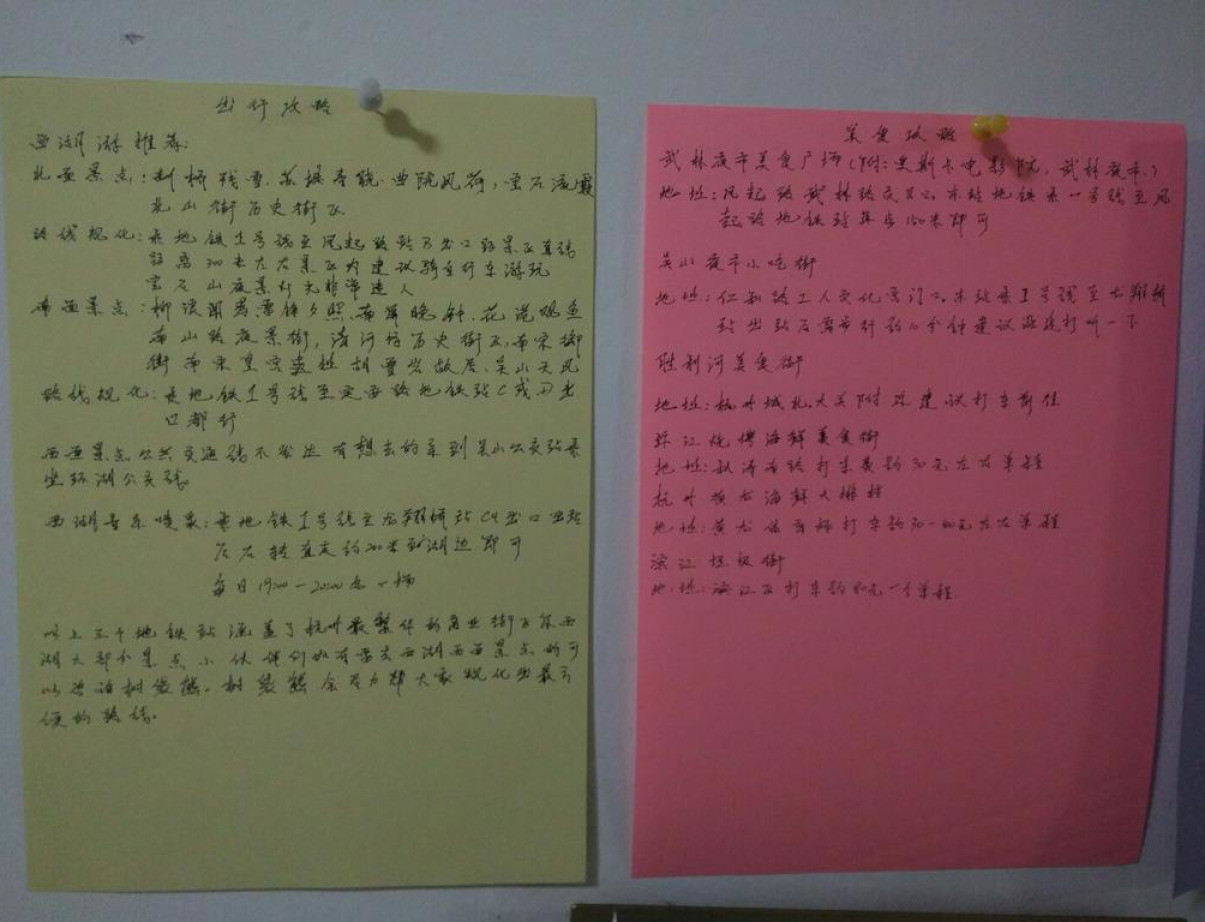 出行攻略
西湖游推荐:
北面景点:断桥残雪、苏堤春晓、曲院风荷、宝石流霞
北山街历史街区
路线规化:乘地铁1号线至凤起路站B出口距景区直线
距离300米左右景区内建议骑自行车游玩
宝石山夜景灯光非常迷人
南面景点:柳浪闻莺雷锋夕照、南屏晚钟、花港观鱼
南山路夜景街,清河坊历史街区,南宋御
街南宋皇宫遗址胡雪岩故居、吴山天风
路线规化:乘地铁1号线至定安路地铁站C或D出
口都行
西面景点公共交通线不发达有想去的亲到吴山公交站乘
坐环湖公交线。
西湖音乐喷泉:乘地铁1号线至龙翔桥站C4出口出站
后右转直走约200米到湖边即可
每日19:00-20:00各一场
以上三个地铁站涵盖了杭州最繁华的商业街区和西
湖大部分景点小伙伴们如有需去西湖西面景点的可
以咨询树袋熊。树袋熊会尽力帮大家规化出最方
便的路线。
美食攻略
武林夜市美食广场(附:奥斯卡电影院、武林夜市)
地址:凤起路武林路交叉口,本站地铁乘一号线至凤
起路地铁站再走150米即可
吴山夜市小吃街
地址:仁和路工人文化宫门口,本站乘1号线至龙翔桥
站出站后需步行约10分钟建议沿途打听一下
胜利河美食街
地址:杭州城北,大关附近建议打车前往
地址:秋涛南路打车费约30元左右单程
杭州黄龙海鲜大排档
地址:黄龙体育场打车约30-40元左右单程
滨江垃圾街
地址:滨江区打车约50元一个单程